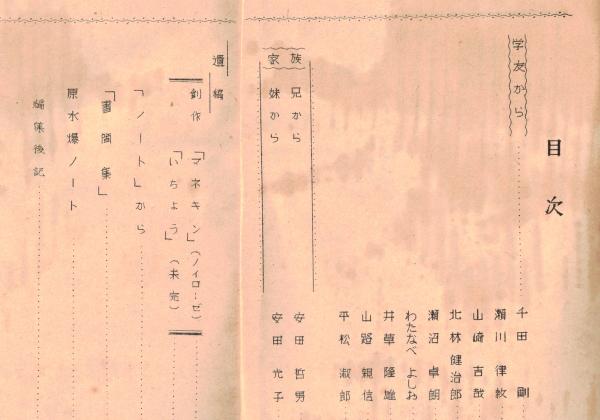 目次
学友から
千田 剛
瀬川 律紋
山崎 吉哉
北林 健治郎
瀬沼 卓朗
わたなべ よしお
井草 隆雄
山路 親信
平松 淑郎
家族
兄から 安田 哲男
妹から 安田 允子
遺稿
創作 「マネキン」(ノイローゼ)
「いちょう」(未完)
「ノート」から
「書簡集」
原水爆ノート
編集後記